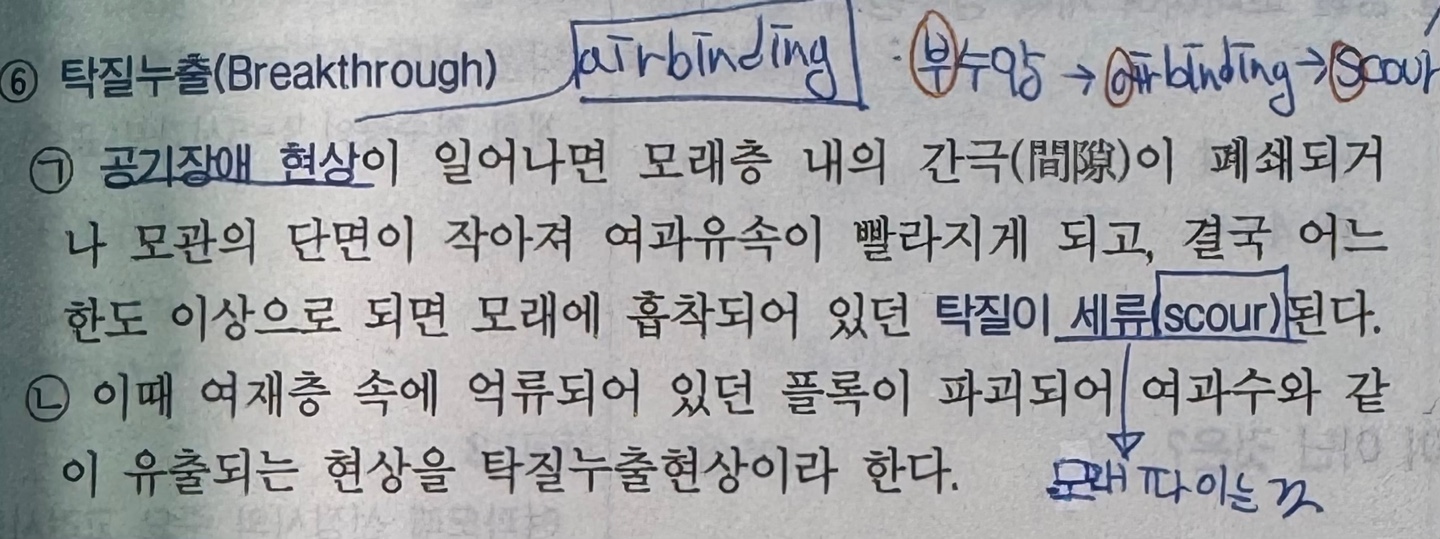 ⑥ 탁질누출(Breakthrough) airbinding : 부수압 → airbinding → scour
㉠ 공기장애 현상이 일어나면 모래층 내의 간극(間隙)이 폐쇄되거
나 모관의 단면이 작아져 여과유속이 빨라지게 되고, 결국 어느
한도 이상으로 되면 모래에 흡착되어 있던 탁질이 세류(scour)된다.
㉡ 이때 여재층 속에 억류되어 있던 플록이 파괴되어 여과수와 같
이 유출되는 현상을 탁질누출현상이라 한다.
모래 파이는 것